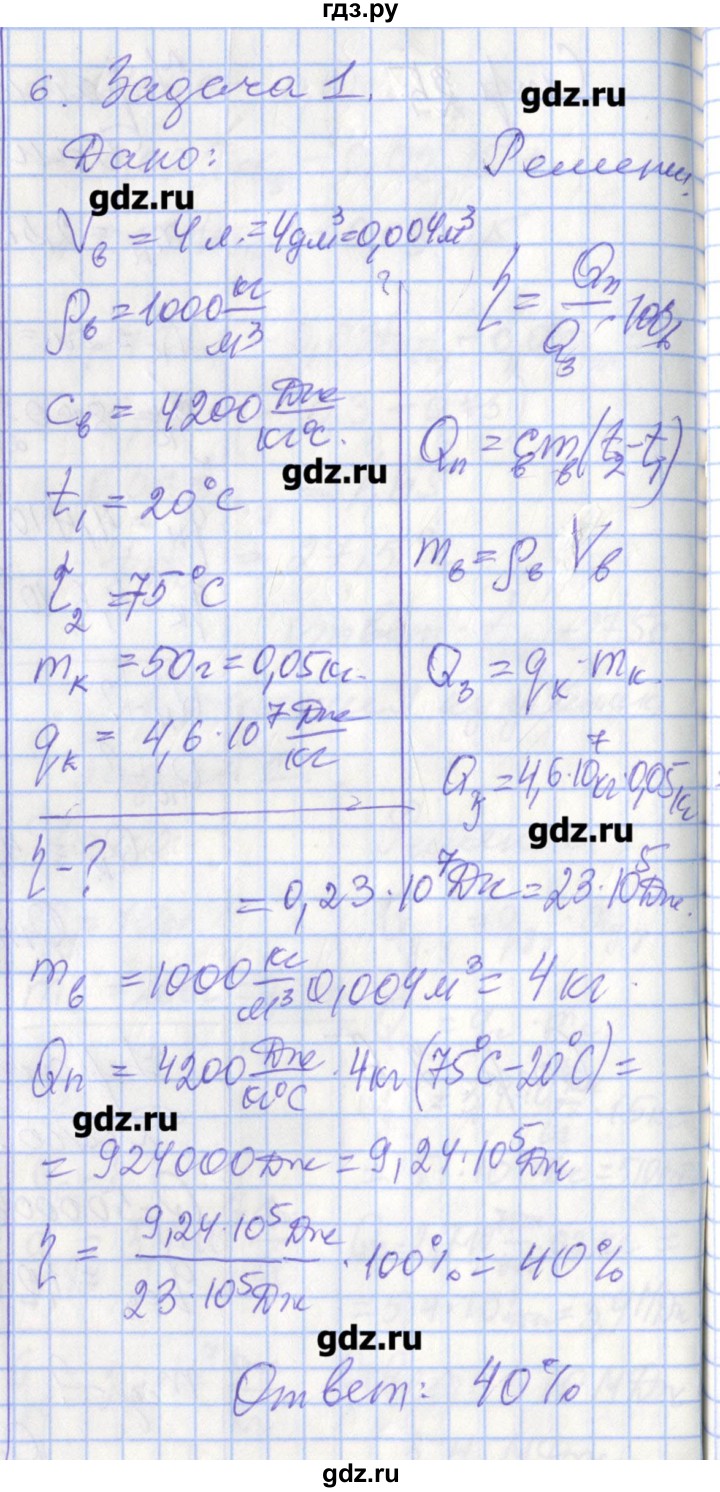 гдз.ру
6. Задача 1.
gdz.ru
Дано:
gdz.ru
Vв = 4 л. = 4 дм³ = 0,004 м³
ρв = 1000 кг/м³
cв = 4200 Дж/кг°C.
gdz.ru
t₁ = 20°C
t₂ = 75°C
mк = 50 г = 0,05 кг.
qк = 4,6 · 10⁷ Дж/кг
η - ?
η = Qп/Qз · 100%
Qп = cв mв (t₂ - t₁)
mв = ρв Vв
Qз = qк · mк.
Qз = 4,6 · 10⁷ кг · 0,05 кг
gdz.ru
= 0,23 · 10⁷ Дж = 23 · 10⁵ Дж.
mв = 1000 кг/м³ 0,004 м³ = 4 кг.
Qп = 4200 Дж/кг°C · 4 кг (75°C - 20°C) =
gdz.ru
= 924000 Дж = 9,24 · 10⁵ Дж
η = 9,24 · 10⁵ Дж / 23 · 10⁵ Дж · 100% = 40%
gdz.ru
Ответ: 40%
gdz.ru